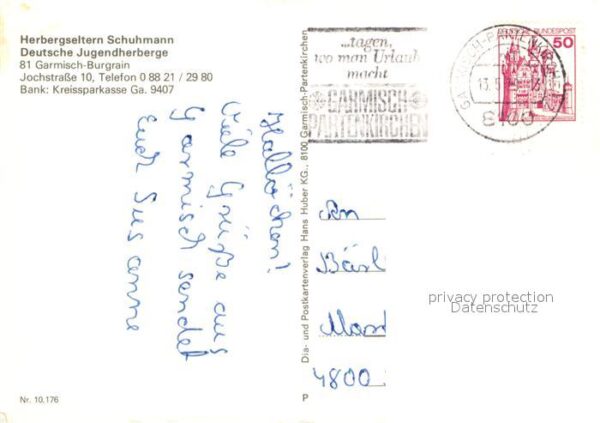 Herbergseltern Schuhmann
Deutsche Jugendherberge
81 Garmisch-Burgrain
Jochstraße 10, Telefon 0 88 21 / 29 80
Bank: Kreissparkasse Ga. 9407
Hallöchen!
Viele Grüße aus
Garmisch sendet
Euch Susanne
Nr. 10,176
Dia- und Postkartenverlag Hans Huber KG., 8100 Garmisch-Partenkirchen
P
...tagen,
wo man Urlaub
macht
GARMISCH
PARTENKIRCHEN
GARMISCH-PARTENKIRCHEN
8100
DEUTSCHE BUNDESPOST
50
4800
privacy protection
Datenschutz